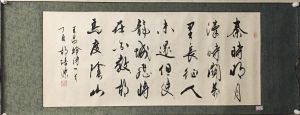 秦時明月
漢時關萬
里長征人
未還但使
龍城飛將
在不教胡
馬度陰山
王昌齡詩一首